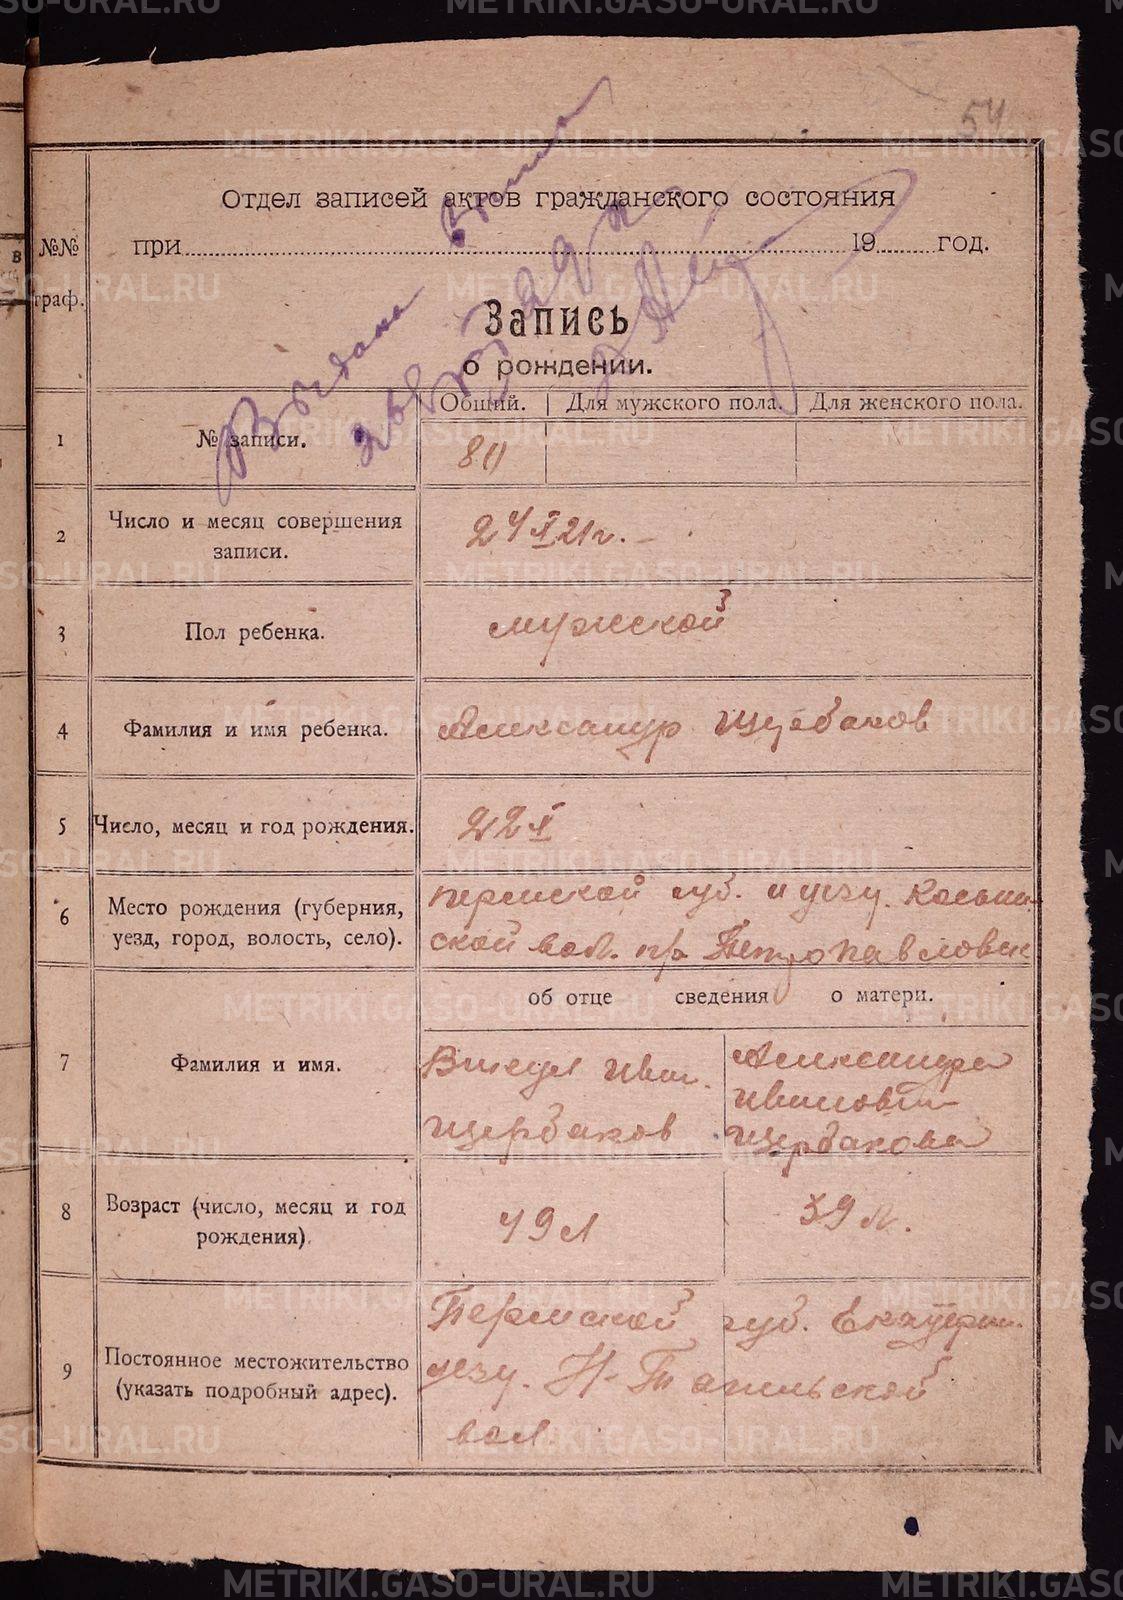 54
Отдел записей актов гражданского состояния
№№ граф.
при 19 год.
Запись
о рождении.
Выдана
Общий. Для мужского пола. Для женского пола.
1 № записи. 80
2 Число и месяц совершения записи. 24 X 21 г.
3 Пол ребенка. мужской
4 Фамилия и имя ребенка. Александр Щербаков
5 Число, месяц и год рождения. 22 X
6 Место рождения (губерния, Пермской губ. и уезу.
уезд, город, волость, село). ской вол. Петропавловск
об отце сведения о матери.
7 Фамилия и имя.
Иван. Александра
Ивановн
Щербаков Щербакова
8 Возраст (число, месяц и год рождения). 49 л 39 л.
9 Постоянное местожительство (указать подробный адрес).
Пермской губ. Екатерин.
уезу. Н-Тагильской
вол.
METRIKI.GASO-URAL.RU